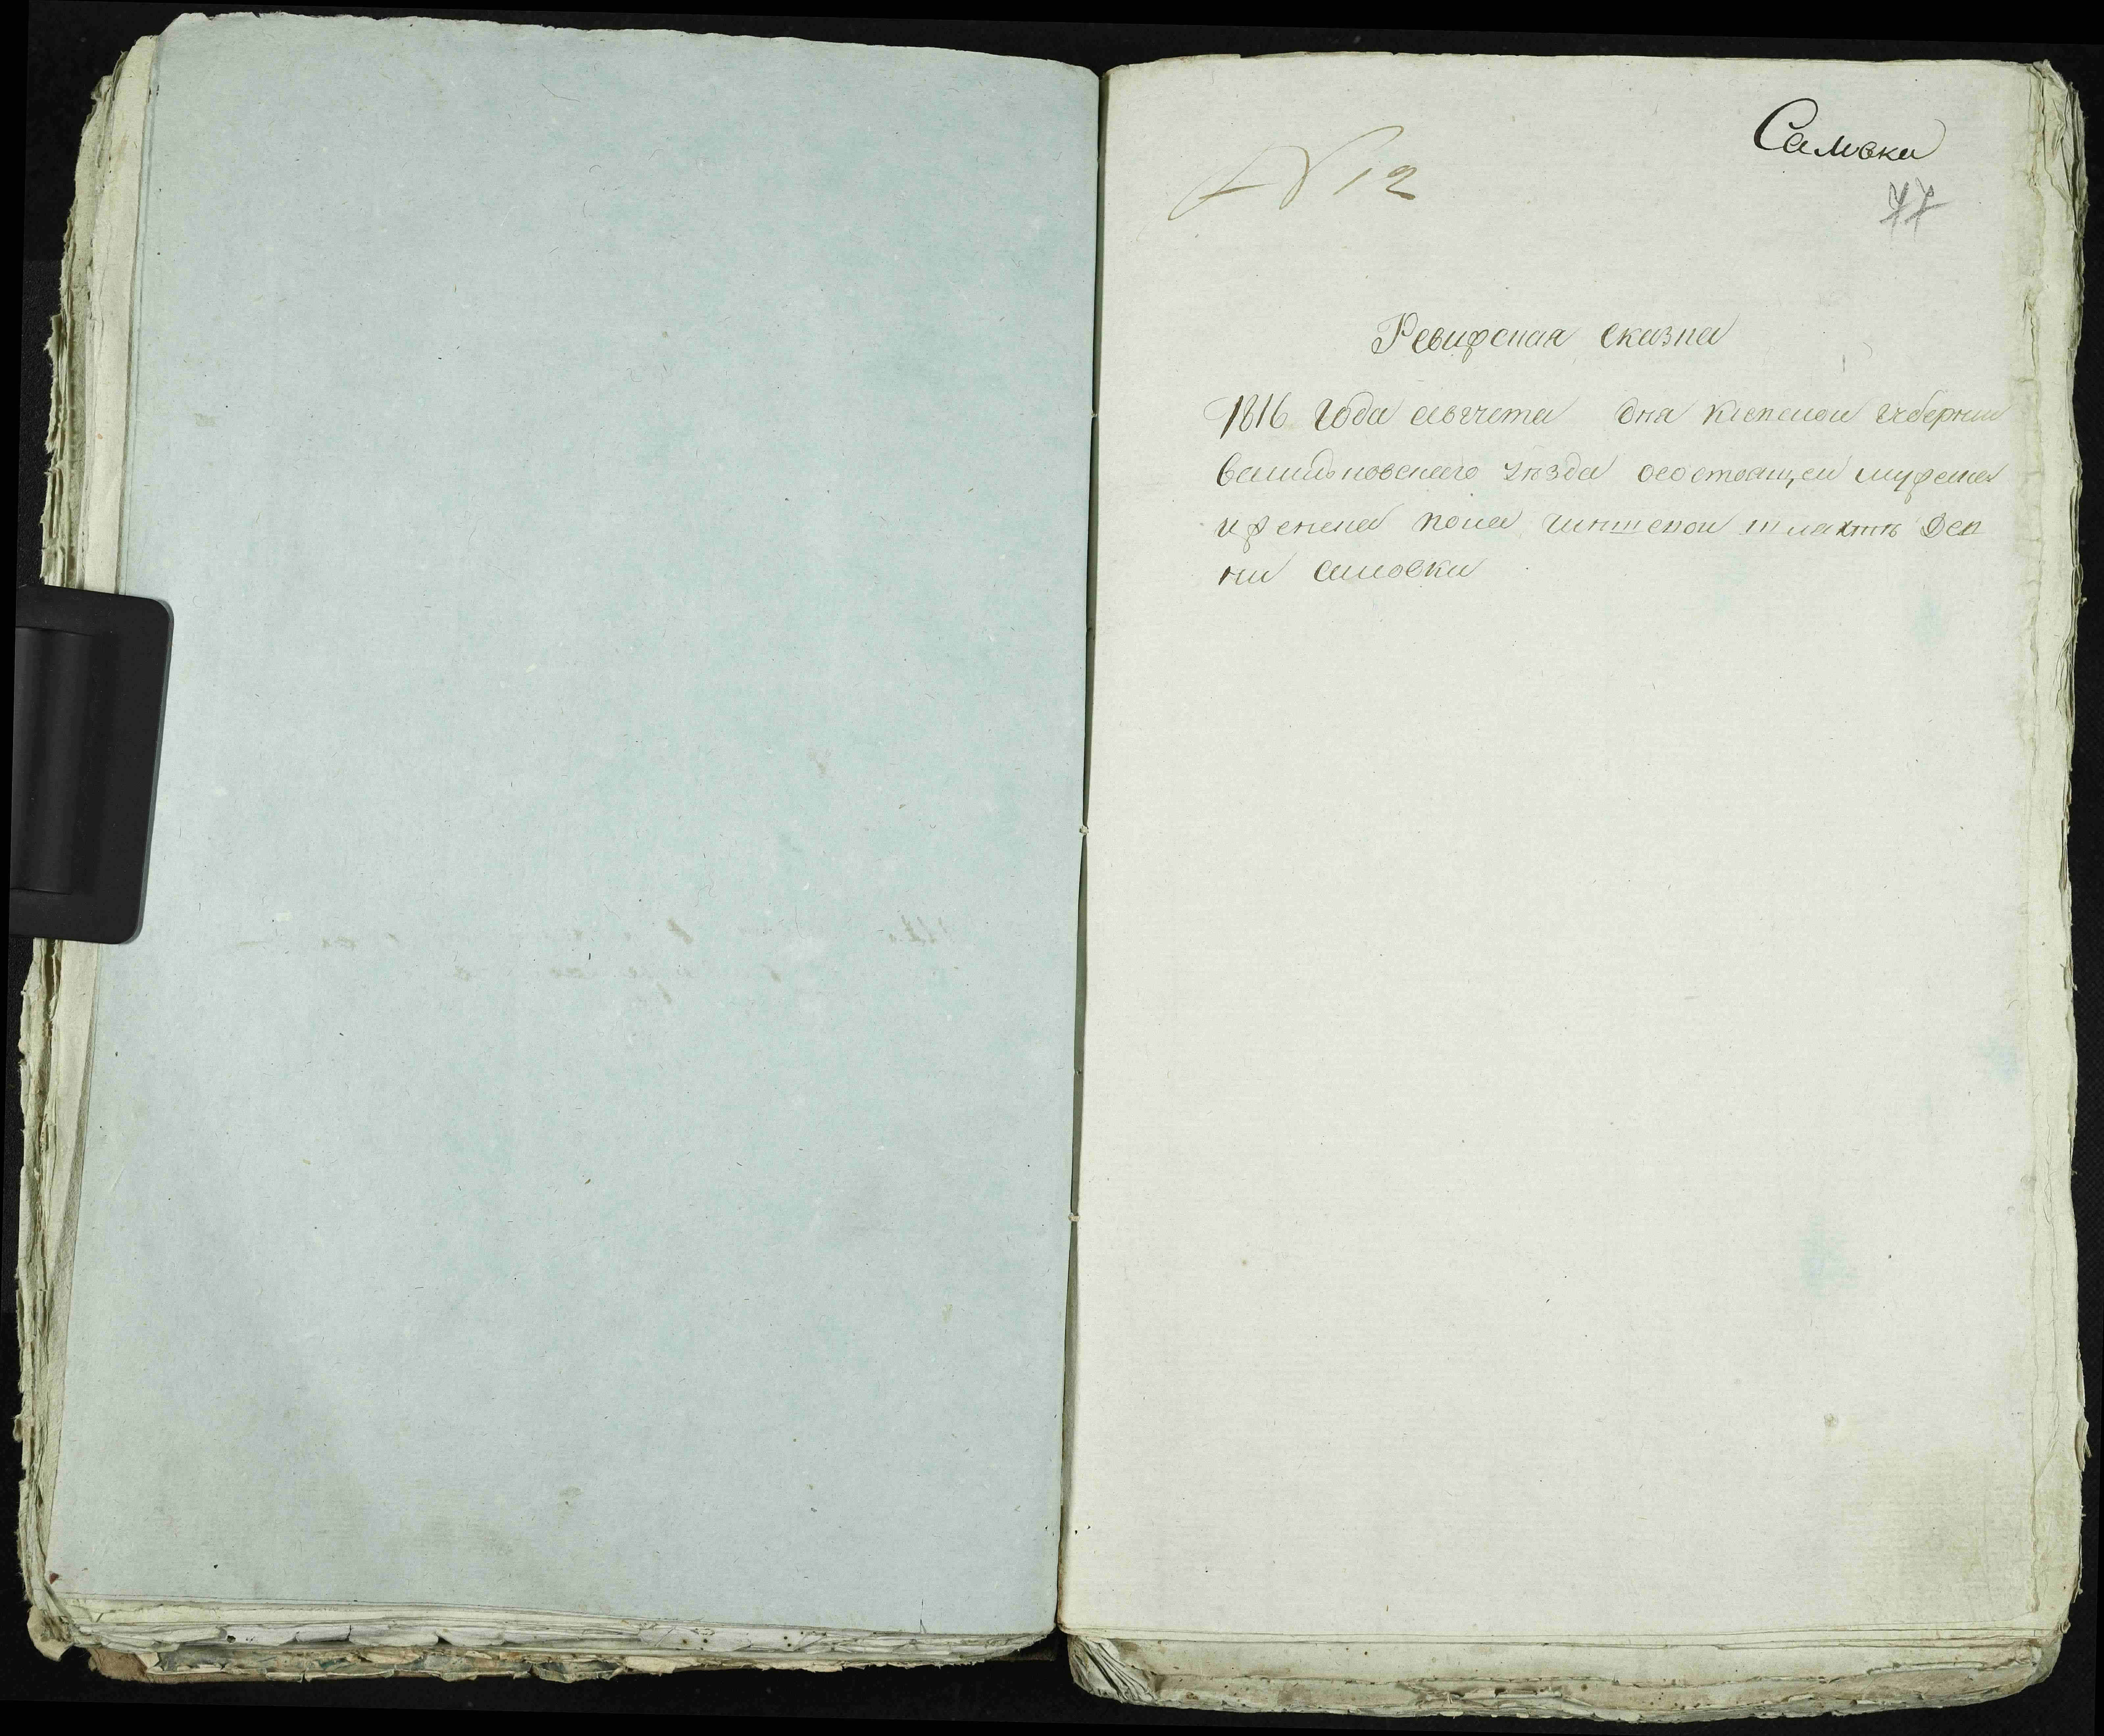 Самовка
N 12
77
Ревижская сказка
1816 года августа дня Киевской губернии
васильковского уезда осостоящей мужеска
и женска пола чиншевой шляхте Дер
ни Самовки